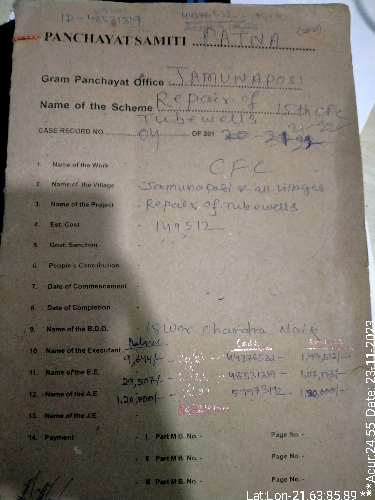 ID - 48531319
PANCHAYAT SAMITI PATNA (2021)
Gram Panchayat Office JAMUNAPOSI
Name of the Scheme Repair of 15th CFC
Tubewells 21-22
CASE RECORD NO. 04 OF 201
1. Name of the Work CFC
2. Name of the Village Jamunaposi & all villages
3. Name of the Project Repairs of Tubewells
4. Est. Cost 149512
5. Govt. Sanction -
6. People's Contribution -
7. Date of Commencement -
8. Date of Completion -
9. Name of the B.D.O. Iswar Chandra Naik
10. Name of the Executant 9,644/- 44376532 -
11. Name of the E.E. 29,507/- 48531319 -
12. Name of the A.E 1,20,000/- 1,20,000/-
13. Name of the J.E. -
14. Payment - I Part M.B. No. - Page No. -
II Part M.B. No. - Page No. -
III Part M.B. No. - Page No. -
Lat:Lon-21.63:85.89
***Acur:24.55 Date, 23-11-2023